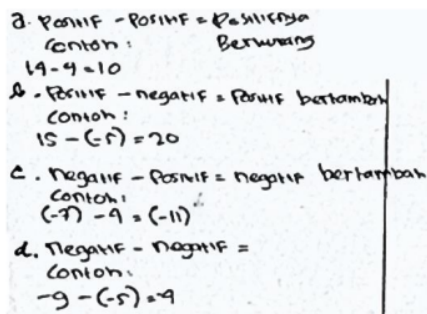 a. Positif - Positif = Positifnya
Contoh : Berkurang
14-4=10
b. Positif - negatif = Positif bertambah
Contoh :
15 - (-5) = 20
c. negatif - Positif = negatif bertambah
Contoh :
(-7) - 4 = (-11)
d. negatif - negatif =
Contoh :
-9 - (-5) = -4